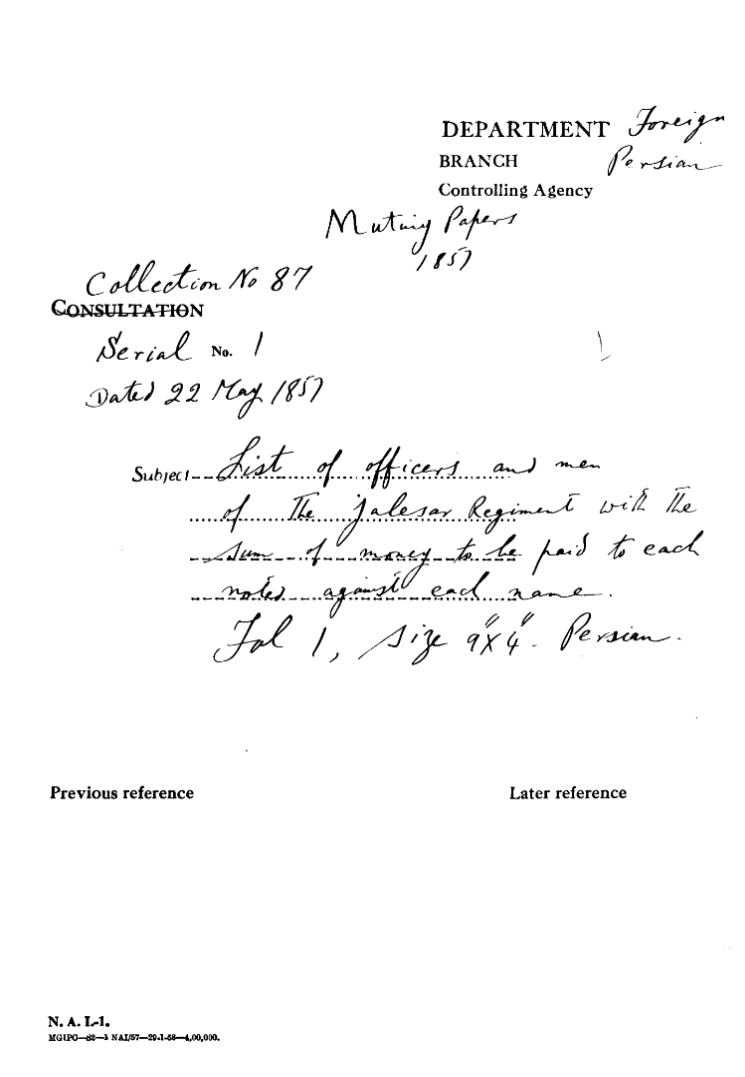 DEPARTMENT Foreign
BRANCH Persian
Controlling Agency
Mutiny Papers
1857
Collection No 87
CONSULTATION
Serial No. 1
Dated 22 May 1857
Subject List of officers and men
of The Jalesar Regiment with the
sum of money to be paid to each
noted against each name.
Fol 1, Size 9"X4". Persian.
Previous reference Later reference
N. A. I.-1.
MGIPC—S2—3 NAI/57—29-1-58—4,00,000.